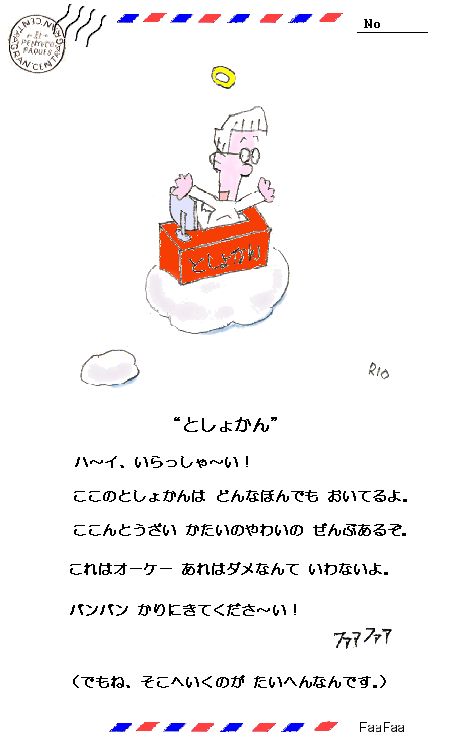 No
としょかん
RIO
“としょかん”
ハ～イ、いらっしゃ～い！
ここのとしょかんは どんなほんでも おいてるよ。
ここんとうざい かたいのやわいの ぜんぶあるぞ。
これはオーケー あれはダメなんて いわないよ。
バンバン かりにきてくださ～い！
ファァファァ
（でもね、そこへいくのが たいへんなんです。）
FaaFaa